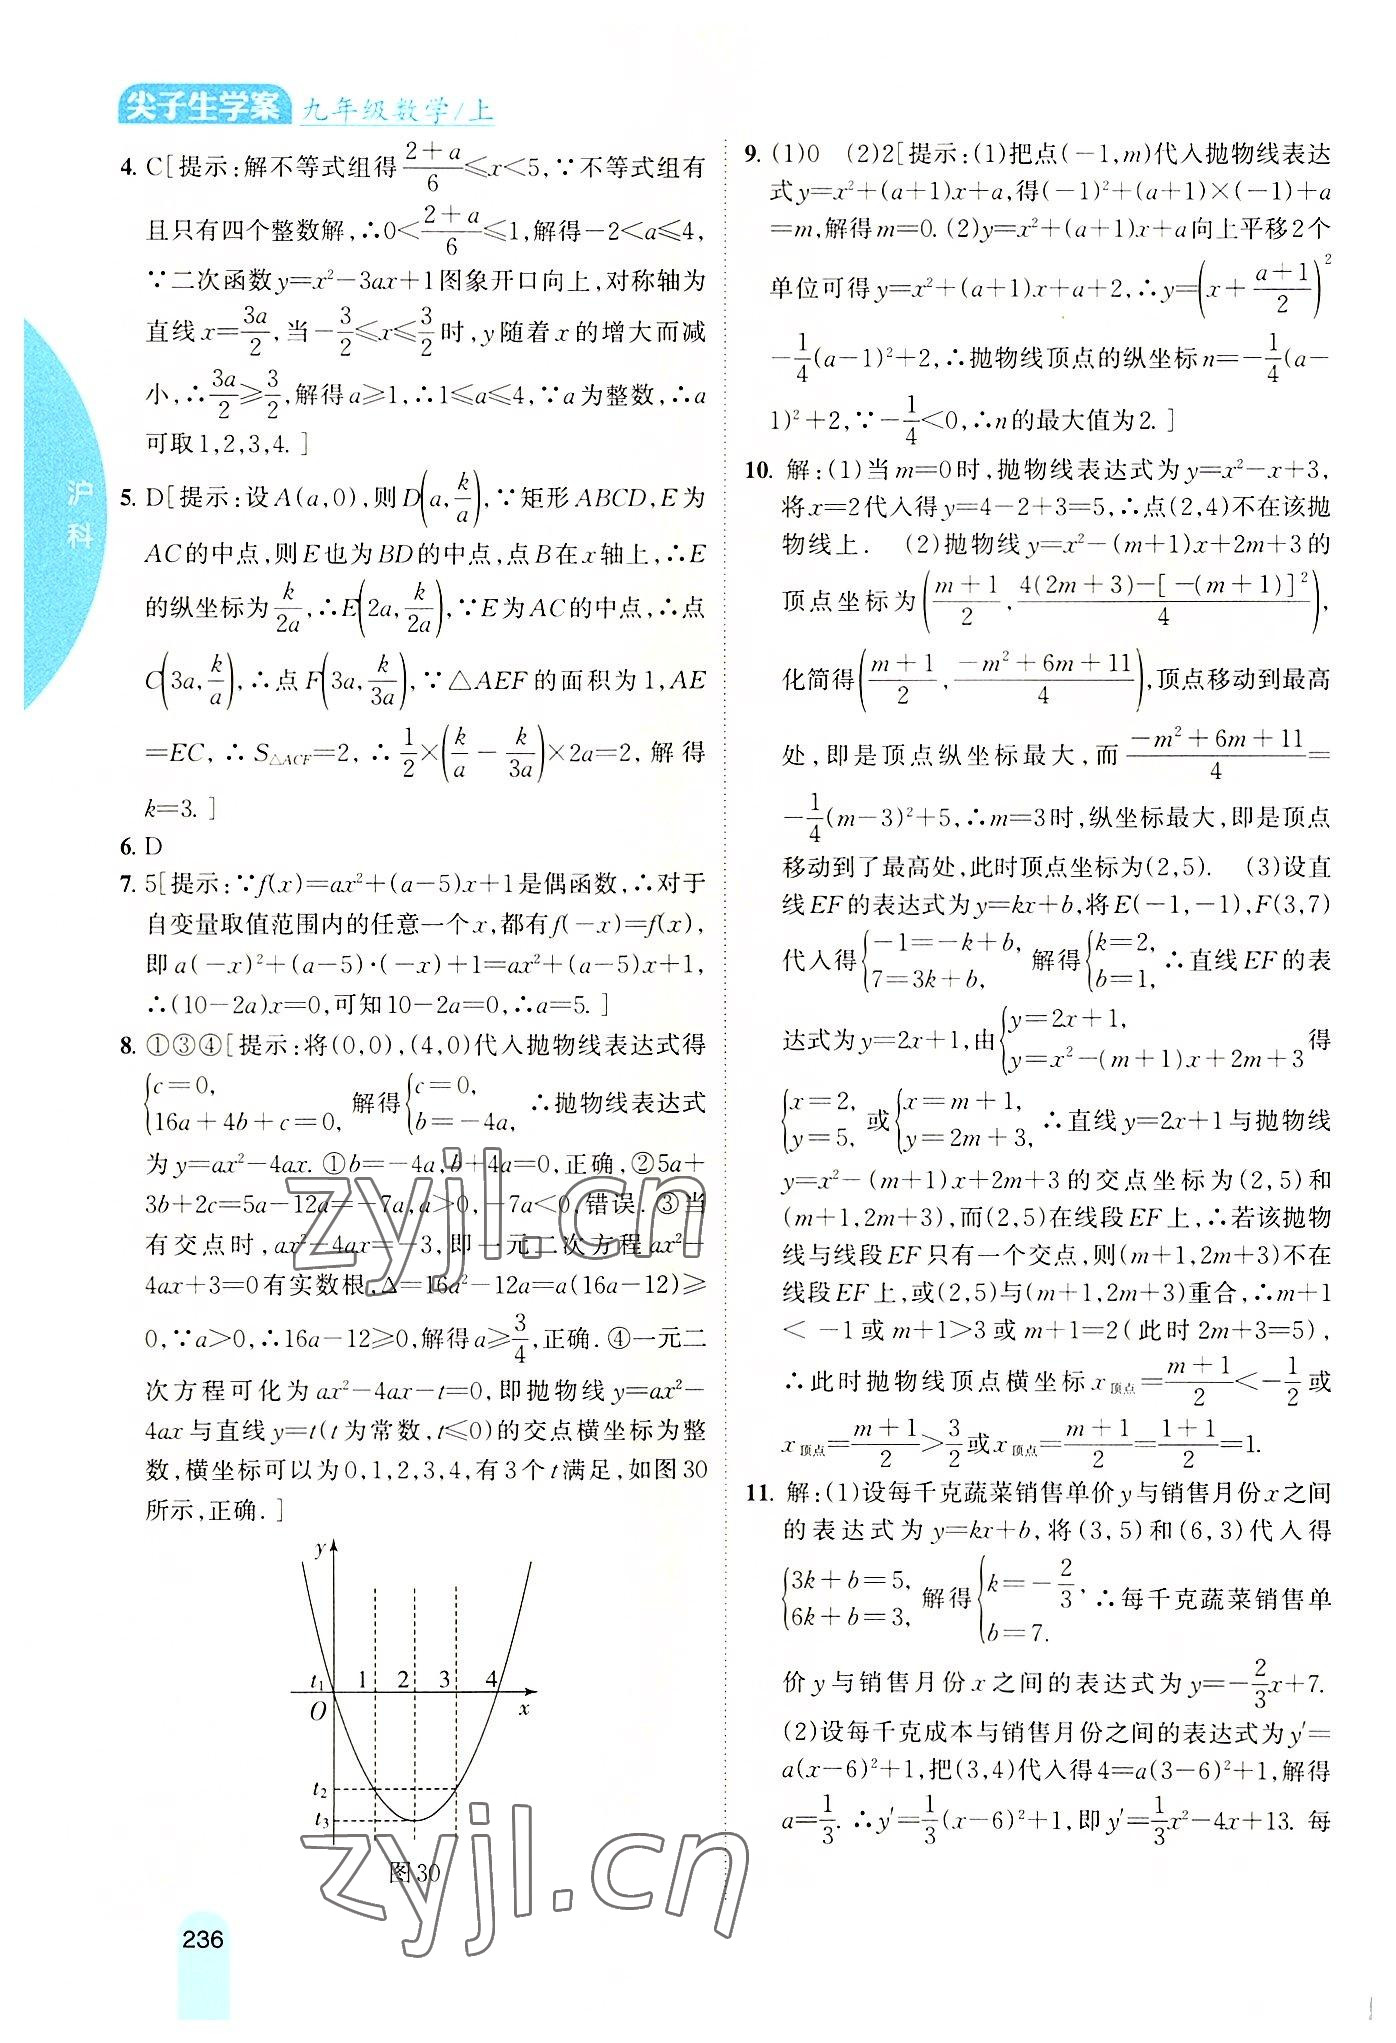 尖子生学案 九年级数学/上
4. C[提示:解不等式组得(2+a)/6≤x<5,∵不等式组有
且只有四个整数解,∴0<(2+a)/6≤1,解得-2<a≤4,
∵二次函数y=x²-3ax+1图象开口向上,对称轴为
直线x=3a/2,当-3/2≤x≤3/2时,y随着x的增大而减
小,∴3a/2≥3/2,解得a≥1,∴1≤a≤4,∵a为整数,∴a
可取1,2,3,4. ]
沪科
5. D[提示:设A(a,0),则D(a,k/a),∵矩形ABCD,E为
AC的中点,则E也为BD的中点,点B在x轴上,∴E
的纵坐标为k/2a,∴E(2a,k/2a),∵E为AC的中点,∴点
C(3a,k/a),∴点F(3a,k/3a),∵△AEF的面积为1,AE
=EC,∴S△ACF=2,∴1/2×(k/a-k/3a)×2a=2,解得
k=3. ]
6. D
7. 5[提示:∵f(x)=ax²+(a-5)x+1是偶函数,∴对于
自变量取值范围内的任意一个x,都有f(-x)=f(x),
即a(-x)²+(a-5)·(-x)+1=ax²+(a-5)x+1,
∴(10-2a)x=0,可知10-2a=0,∴a=5. ]
8. ①③④[提示:将(0,0),(4,0)代入抛物线表达式得
{c=0, 16a+4b+c=0, 解得{c=0, b=-4a, ∴抛物线表达式
为y=ax²-4ax.①b=-4a,b+4a=0,正确,②5a+
3b+2c=5a-12a=-7a,a>0,-7a<0,错误.③当
有交点时,ax²-4ax=-3,即一元二次方程ax²-
4ax+3=0有实数根,Δ=16a²-12a=a(16a-12)≥
0,∵a>0,∴16a-12≥0,解得a≥3/4,正确.④一元二
次方程可化为ax²-4ax-t=0,即抛物线y=ax²-
4ax与直线y=t(t为常数,t≤0)的交点横坐标为整
数,横坐标可以为0,1,2,3,4,有3个t满足,如图30
所示,正确. ]
y
t₁ 1 2 3 4
O x
t₂
t₃
图30
236
9. (1)0 (2)2[提示:(1)把点(-1,m)代入抛物线表达
式y=x²+(a+1)x+a,得(-1)²+(a+1)×(-1)+a
=m,解得m=0.(2)y=x²+(a+1)x+a向上平移2个
单位可得y=x²+(a+1)x+a+2,∴y=(x+(a+1)/2)²
-1/4(a-1)²+2,∴抛物线顶点的纵坐标n=-1/4(a-
1)²+2,∵-1/4<0,∴n的最大值为2. ]
10. 解:(1)当m=0时,抛物线表达式为y=x²-x+3,
将x=2代入得y=4-2+3=5,∴点(2,4)不在该抛
物线上. (2)抛物线y=x²-(m+1)x+2m+3的
顶点坐标为((m+1)/2,(4(2m+3)-[-(m+1)]²)/4),
化简得((m+1)/2,(-m²+6m+11)/4),顶点移动到最高
处,即是顶点纵坐标最大,而(-m²+6m+11)/4=
-1/4(m-3)²+5,∴m=3时,纵坐标最大,即是顶点
移动到了最高处,此时顶点坐标为(2,5). (3)设直
线EF的表达式为y=kx+b,将E(-1,-1),F(3,7)
代入得{-1=-k+b, 7=3k+b, 解得{k=2, b=1, ∴直线EF的表
达式为y=2x+1,由{y=2x+1, y=x²-(m+1)x+2m+3得
{x=2, y=5, 或{x=m+1, y=2m+3, ∴直线y=2x+1与抛物线
y=x²-(m+1)x+2m+3的交点坐标为(2,5)和
(m+1,2m+3),而(2,5)在线段EF上,∴若该抛物
线与线段EF只有一个交点,则(m+1,2m+3)不在
线段EF上,或(2,5)与(m+1,2m+3)重合,∴m+1
<-1或m+1>3或m+1=2(此时2m+3=5),
∴此时抛物线顶点横坐标x顶点=(m+1)/2<-1/2或
x顶点=(m+1)/2>3/2或x顶点=(m+1)/2=(1+1)/2=1.
11. 解:(1)设每千克蔬菜销售单价y与销售月份x之间
的表达式为y=kx+b,将(3,5)和(6,3)代入得
{3k+b=5, 6k+b=3, 解得{k=-2/3, b=7. ∴每千克蔬菜销售单
价y与销售月份x之间的表达式为y=-2/3x+7.
(2)设每千克成本与销售月份之间的表达式为y′=
a(x-6)²+1,把(3,4)代入得4=a(3-6)²+1,解得
a=1/3.∴y′=1/3(x-6)²+1,即y′=1/3x²-4x+13. 每
zyjl.cn
zyjl.cn